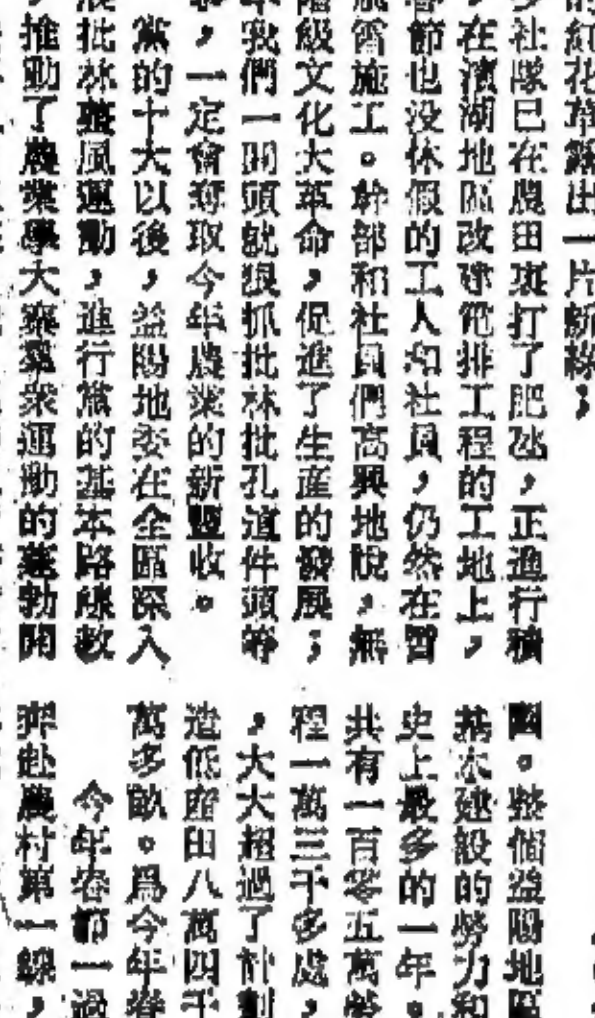 的紅花草露出一片新綠；
多社隊已在農田裏打了肥氹，正進行積
，在濱湖地區改建電排工程的工地上，
春節也没休假的工人和社員，仍然在冒
風雪施工。幹部和社員們高興地說，無
階級文化大革命，促進了生產的發展；
年我們一開頭就狠抓批林批孔道件頭等
，一定會奪取今年農業的新豐收。
黨的十大以後，益陽地委在全區深入
展批林整風運動，進行黨的基本路線教
，推動了農業學大寨羣衆運動的蓬勃開
國。整個益陽地區
基本建設的勞力和
史上最多的一年。
共有一百零五萬勞
程一萬三千多處，
，大大超過了計劃
造低產田八萬四千
萬多畝。爲今年春
今年春節一過
奔赴農村第一線，